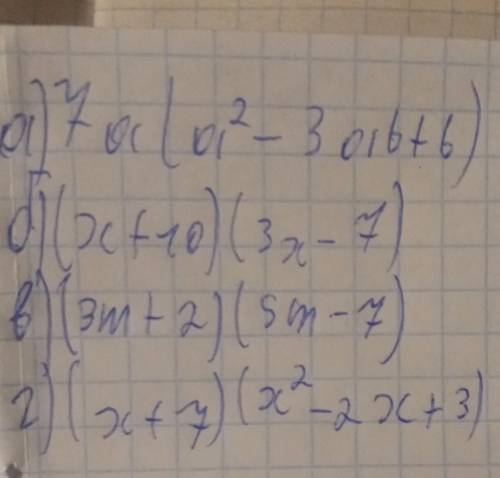 а) 7a(a² - 3ab + b)
б) (x + 10)(3x - 7)
в) (3m + 2)(5m - 7)
г) (x + 7)(x² - 2x + 3)